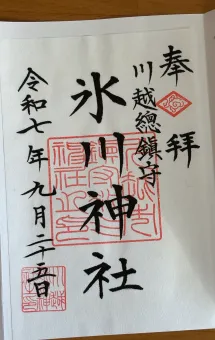 奉拜
川越總鎮守
氷川神社
令和七年九月二十五日